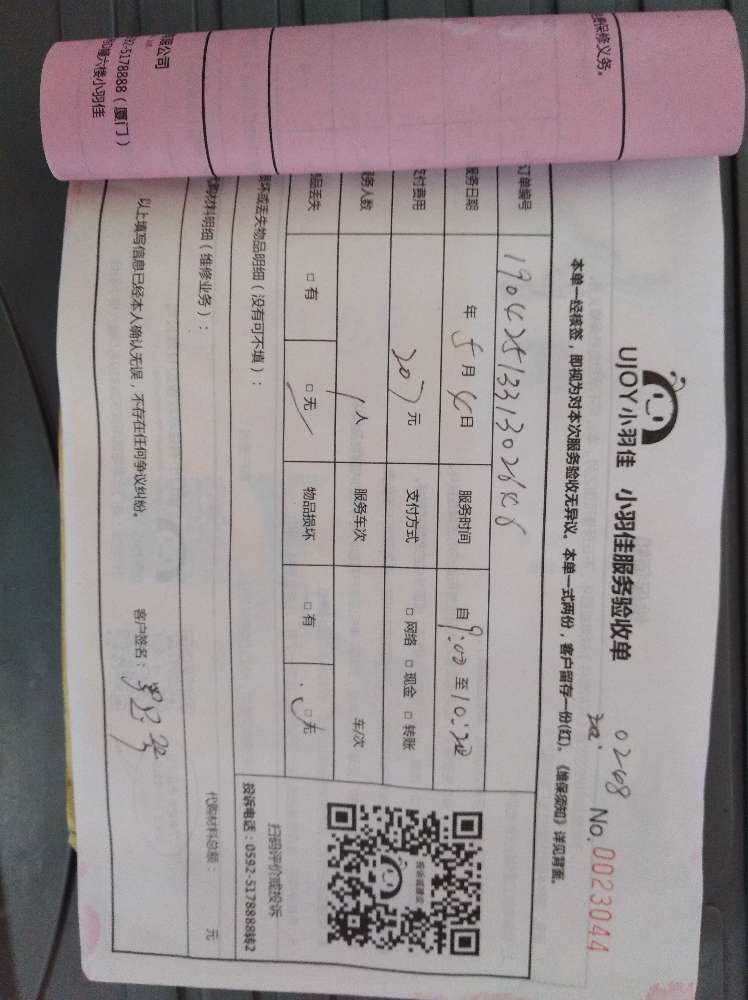 UJOY小羽佳 小羽佳服务验收单
0248
No. 0023044
本单一经核签，即视为对本次服务验收无异议。本单一式两份，客户留存一份(红)。《维保须知》详见背面。
订单编号
服务日期 年 5月4日 服务时间 自9:00至10:20
支付费用 207元 支付方式 □网络 □现金 □转账
服务人数 1人 服务车次 车/次
物品丢失 □有 □无 物品损坏 □有 □无
损坏或丢失物品明细（没有可不填）：
代购材料明细（维修业务）： 代购材料总额： 元
以上填写信息已经本人确认无误，不存在任何争议纠纷。 客户签名：
扫码评价或投诉
投诉电话：0592-5178888转2
保修义务。
限公司
92-5178888（厦门）
楼六楼小羽佳